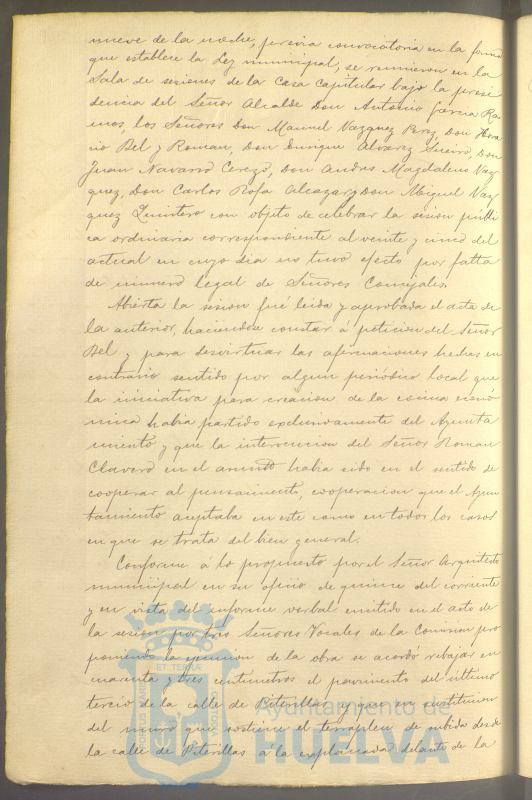 nueve de la noche, previa convocatoria en la forma
que establece la Ley municipal, se reunieron en la
Sala de sesiones de la Casa Capitular bajo la presi
dencia del Señor Alcalde Don Antonio Garcia Ra
mos, los Señores Don Manuel Vazquez Perez, Don Hora
cio Bel y Roman, Don Enrique Alvarez Sueiro, Don
Juan Navarro Cerezo, Don Andres Magdaleno Vaz
quez, Don Carlos Rofa Alcazar y Don Miguel Vaz
quez Quintero con objeto de celebrar la sesion públi
ca ordinaria correspondiente al veinte y cinco del
actual en cuyo dia no tuvo efecto por falta
de número legal de Señores Concejales.
Abierta la sesion fué leida y aprobada el acta de
la anterior, haciendose constar á peticion del Señor
Bel y para desvirtuar las afirmaciones hechas en
contrario sentido por algun periódico local que
la iniciativa para creacion de la cocina econó
mica habia partido exclusivamente del Ayunta
miento y que la intervencion del Señor Roman
Clavero en el asunto habia sido en el sentido de
cooperar al pensamiento, cooperacion que el Ayun
tamiento aceptaba en este como en todos los casos
en que se trata del bien general.
Conforme á lo propuesto por el Señor Arquitecto
municipal en su oficio de quince del corriente
y en vista del informe verbal emitido en el acto de
la sesion por tres Señores Vocales de la Comision pro
poniendo la ejecucion de la obra se acordó rebajar en
cuarenta y tres centímetros el pavimento del último
tercio de la calle de Piterillas y que en sustitucion
del muro que sostiene el terraplen de subida desde
la calle de Piterillas á la explanada delante de la
Ayuntamiento de
HUELVA